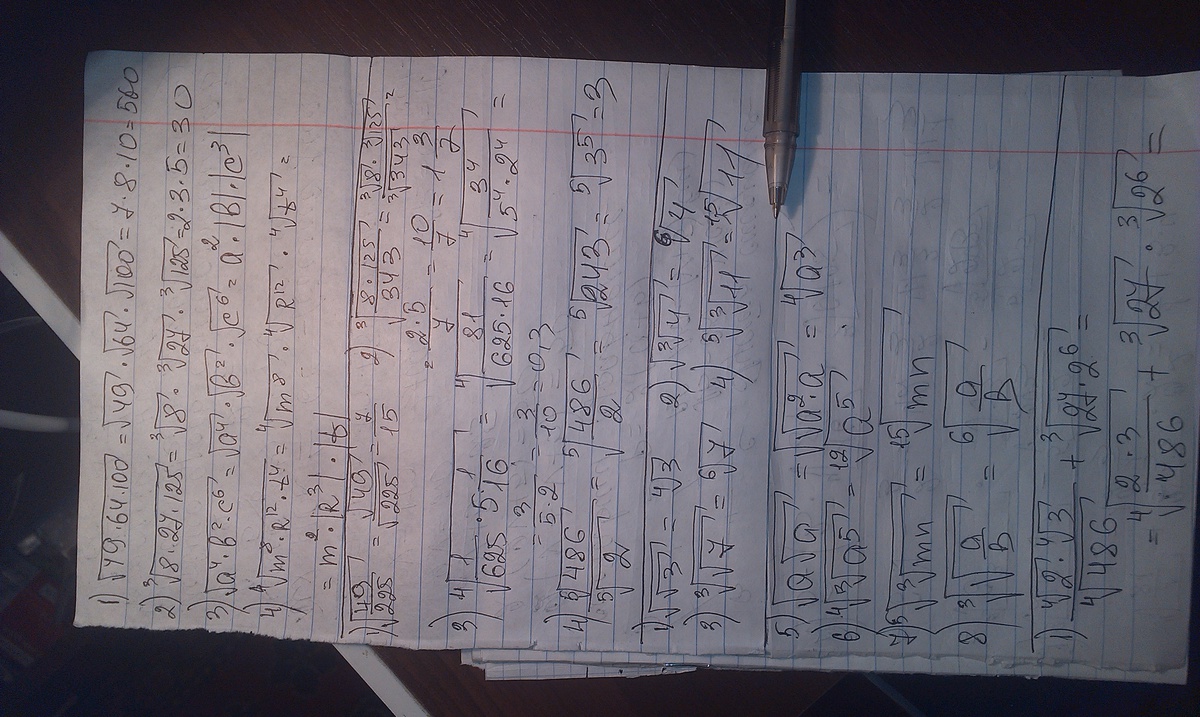 1) √49·64·100 = √49·√64·√100 = 7·8·10 = 560
2) ³√8·27·125 = ³√8·³√27·³√125 = 2·3·5 = 30
3) √a⁴·b²·c⁶ = √a⁴·√b²·√c⁶ = a²·|b|·|c³|
4) ⁴√m⁸·k¹²·t⁴ = ⁴√m⁸·⁴√k¹²·⁴√t⁴ =
= m²·|k³|·|t|
1) √49/225 = √49/√225 = 7/15 2) ³√8·125/343 = ³√8·³√125/³√343 =
= 2·5/7 = 10/7 = 1 3/7
3) ⁴√1/625·5 1/16 = ⁴√81/625·16 = ⁴√3⁴/5⁴·2⁴ =
= 3/5·2 = 3/10 = 0,3
4) ⁵√486/⁵√2 = ⁵√486/2 = ⁵√243 = ⁵√3⁵ = 3
1) √√3 = ⁴√3 2) √³√4 = ⁶√4
3) ³√√7 = ⁶√7 4) ⁵√³√11 = ¹⁵√11
5) √a√a = √√a²·a = ⁴√a³
6) ⁴√³√a⁵ = ¹²√a⁵
7) ⁵√³√mn = ¹⁵√mn
8) ³√√a/b = ⁶√a/b
1) ⁴√2·⁴√3/⁴√486 + ³√27·2⁶ =
= ⁴√2·3/486 + ³√27·³√2⁶ =